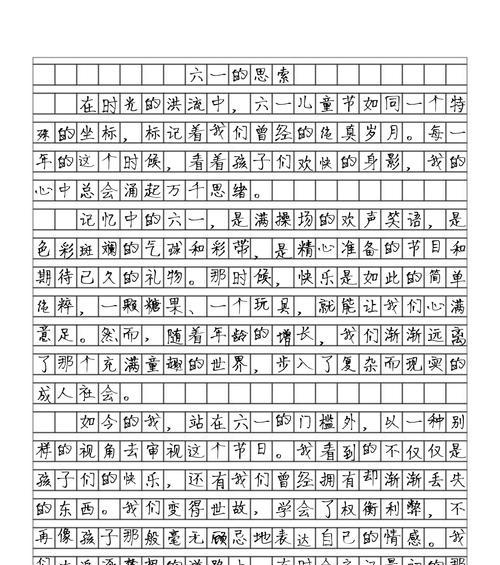 六一的思索
在时光的洪流中，六一儿童节如同一个特
殊的坐标，标记着我们曾经的纯真岁月。每一
年的这个时候，看着孩子们欢快的身影，我的
心中总会涌起万千思绪。
记忆中的六一，是满操场的欢声笑语，是
色彩斑斓的气球和彩带，是精心准备的节目和
期待已久的礼物。那时候，快乐是如此的简单
纯粹，一颗糖果、一个玩具，就能让我们心满
意足。然而，随着年龄的增长，我们渐渐远离
了那个充满童趣的世界，步入了复杂而现实的
成人社会。
如今的我，站在六一的门槛外，以一种别
样的视角去审视这个节日。我看到的不仅仅是
孩子们的快乐，还有我们曾经拥有却渐渐丢失
的东西。我们变得世故，学会了权衡利弊，不
再像孩子那般毫无顾忌地表达自己的情感。我